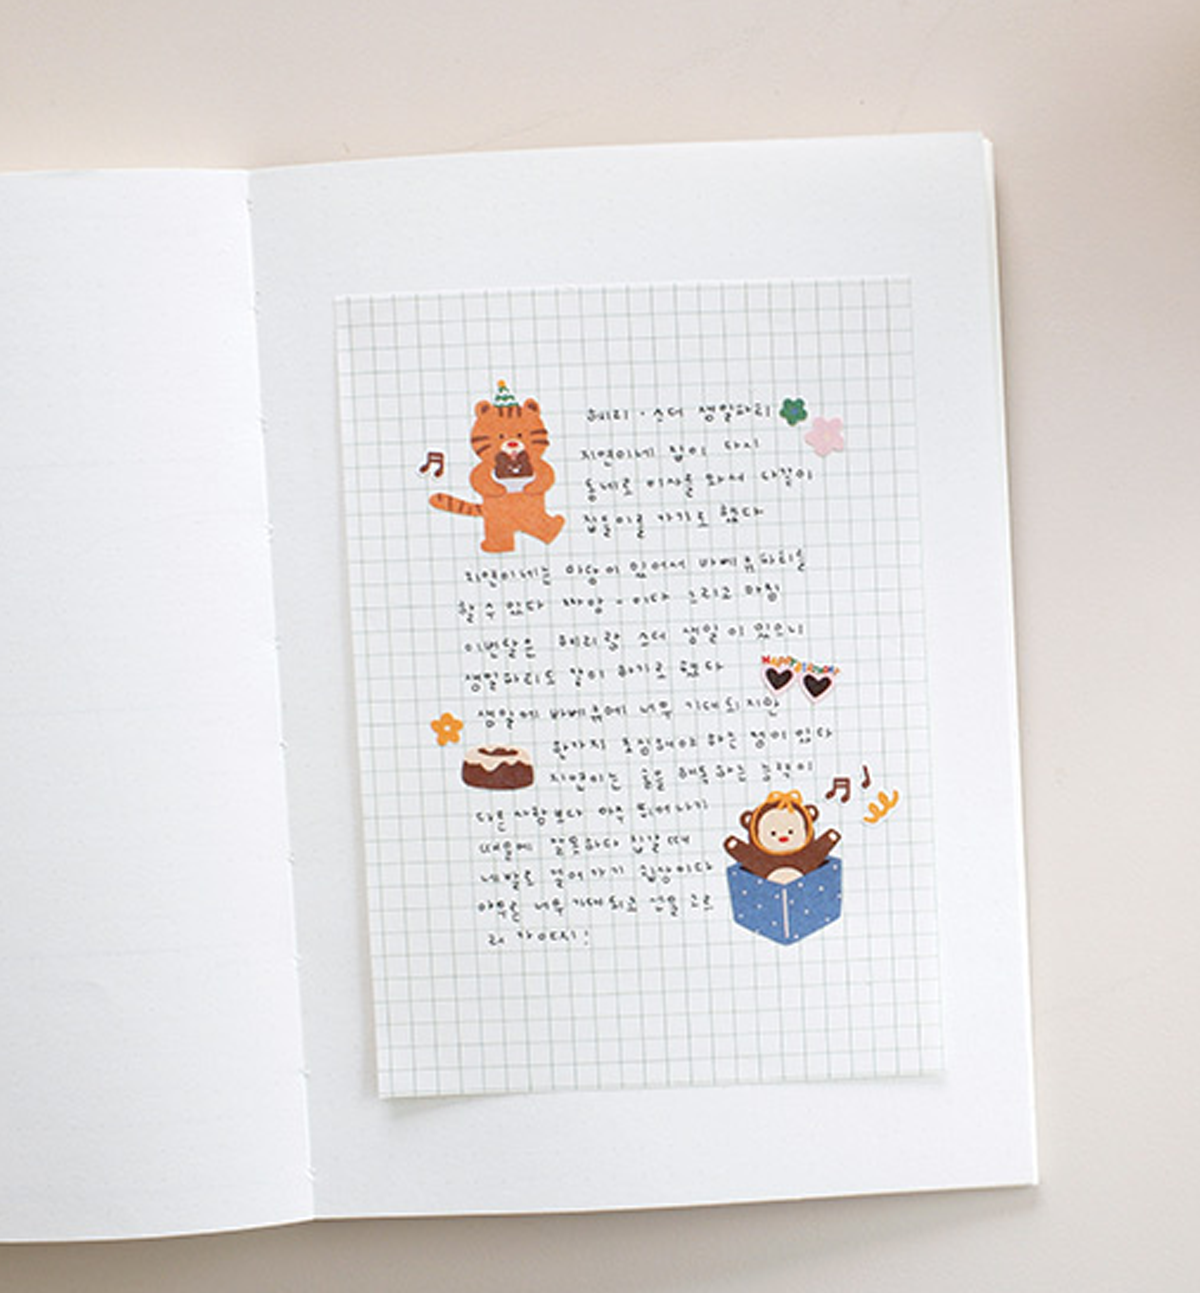 헤리·스더 생일파티
지연이네 집이 다시
동네로 이사를 와서 다같이
집들이를 가기로 했다
지연이네는 마당이 있어서 바베큐파티를
할 수 있다 짜앙-이다 그리고 마침
이번달은 헤리랑 스더 생일이 있으니
생일파티도 같이 하기로 했다
Happy Birthday
생일에 바베큐에 너무 기대되지만
한가지 조심해야 하는 점이 있다
지연이는 술을 해독하는 능력이
다른사람보다 아주 뛰어나기
때문에 잘못하다 집갈때
네발로 걸어가기 십상이다
아무튼 너무 기대되고 선물 고르
러 가야지!